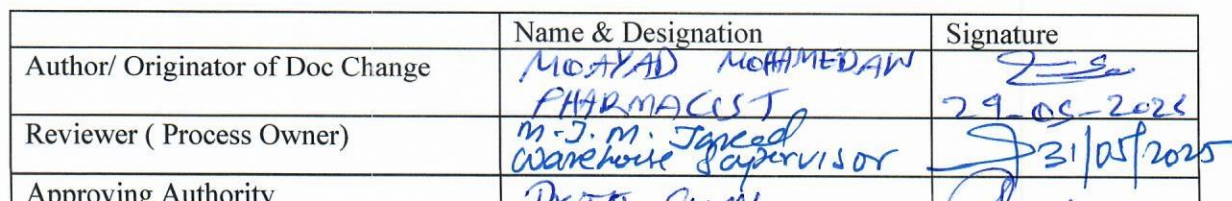 Name & Designation Signature
Author/ Originator of Doc Change MOAYAD MOHAMEDAN
PHARMACIST 29-05-2025
Reviewer ( Process Owner) M.J.M.
Warehouse Supervisor 31/05/2025
Approving Authority